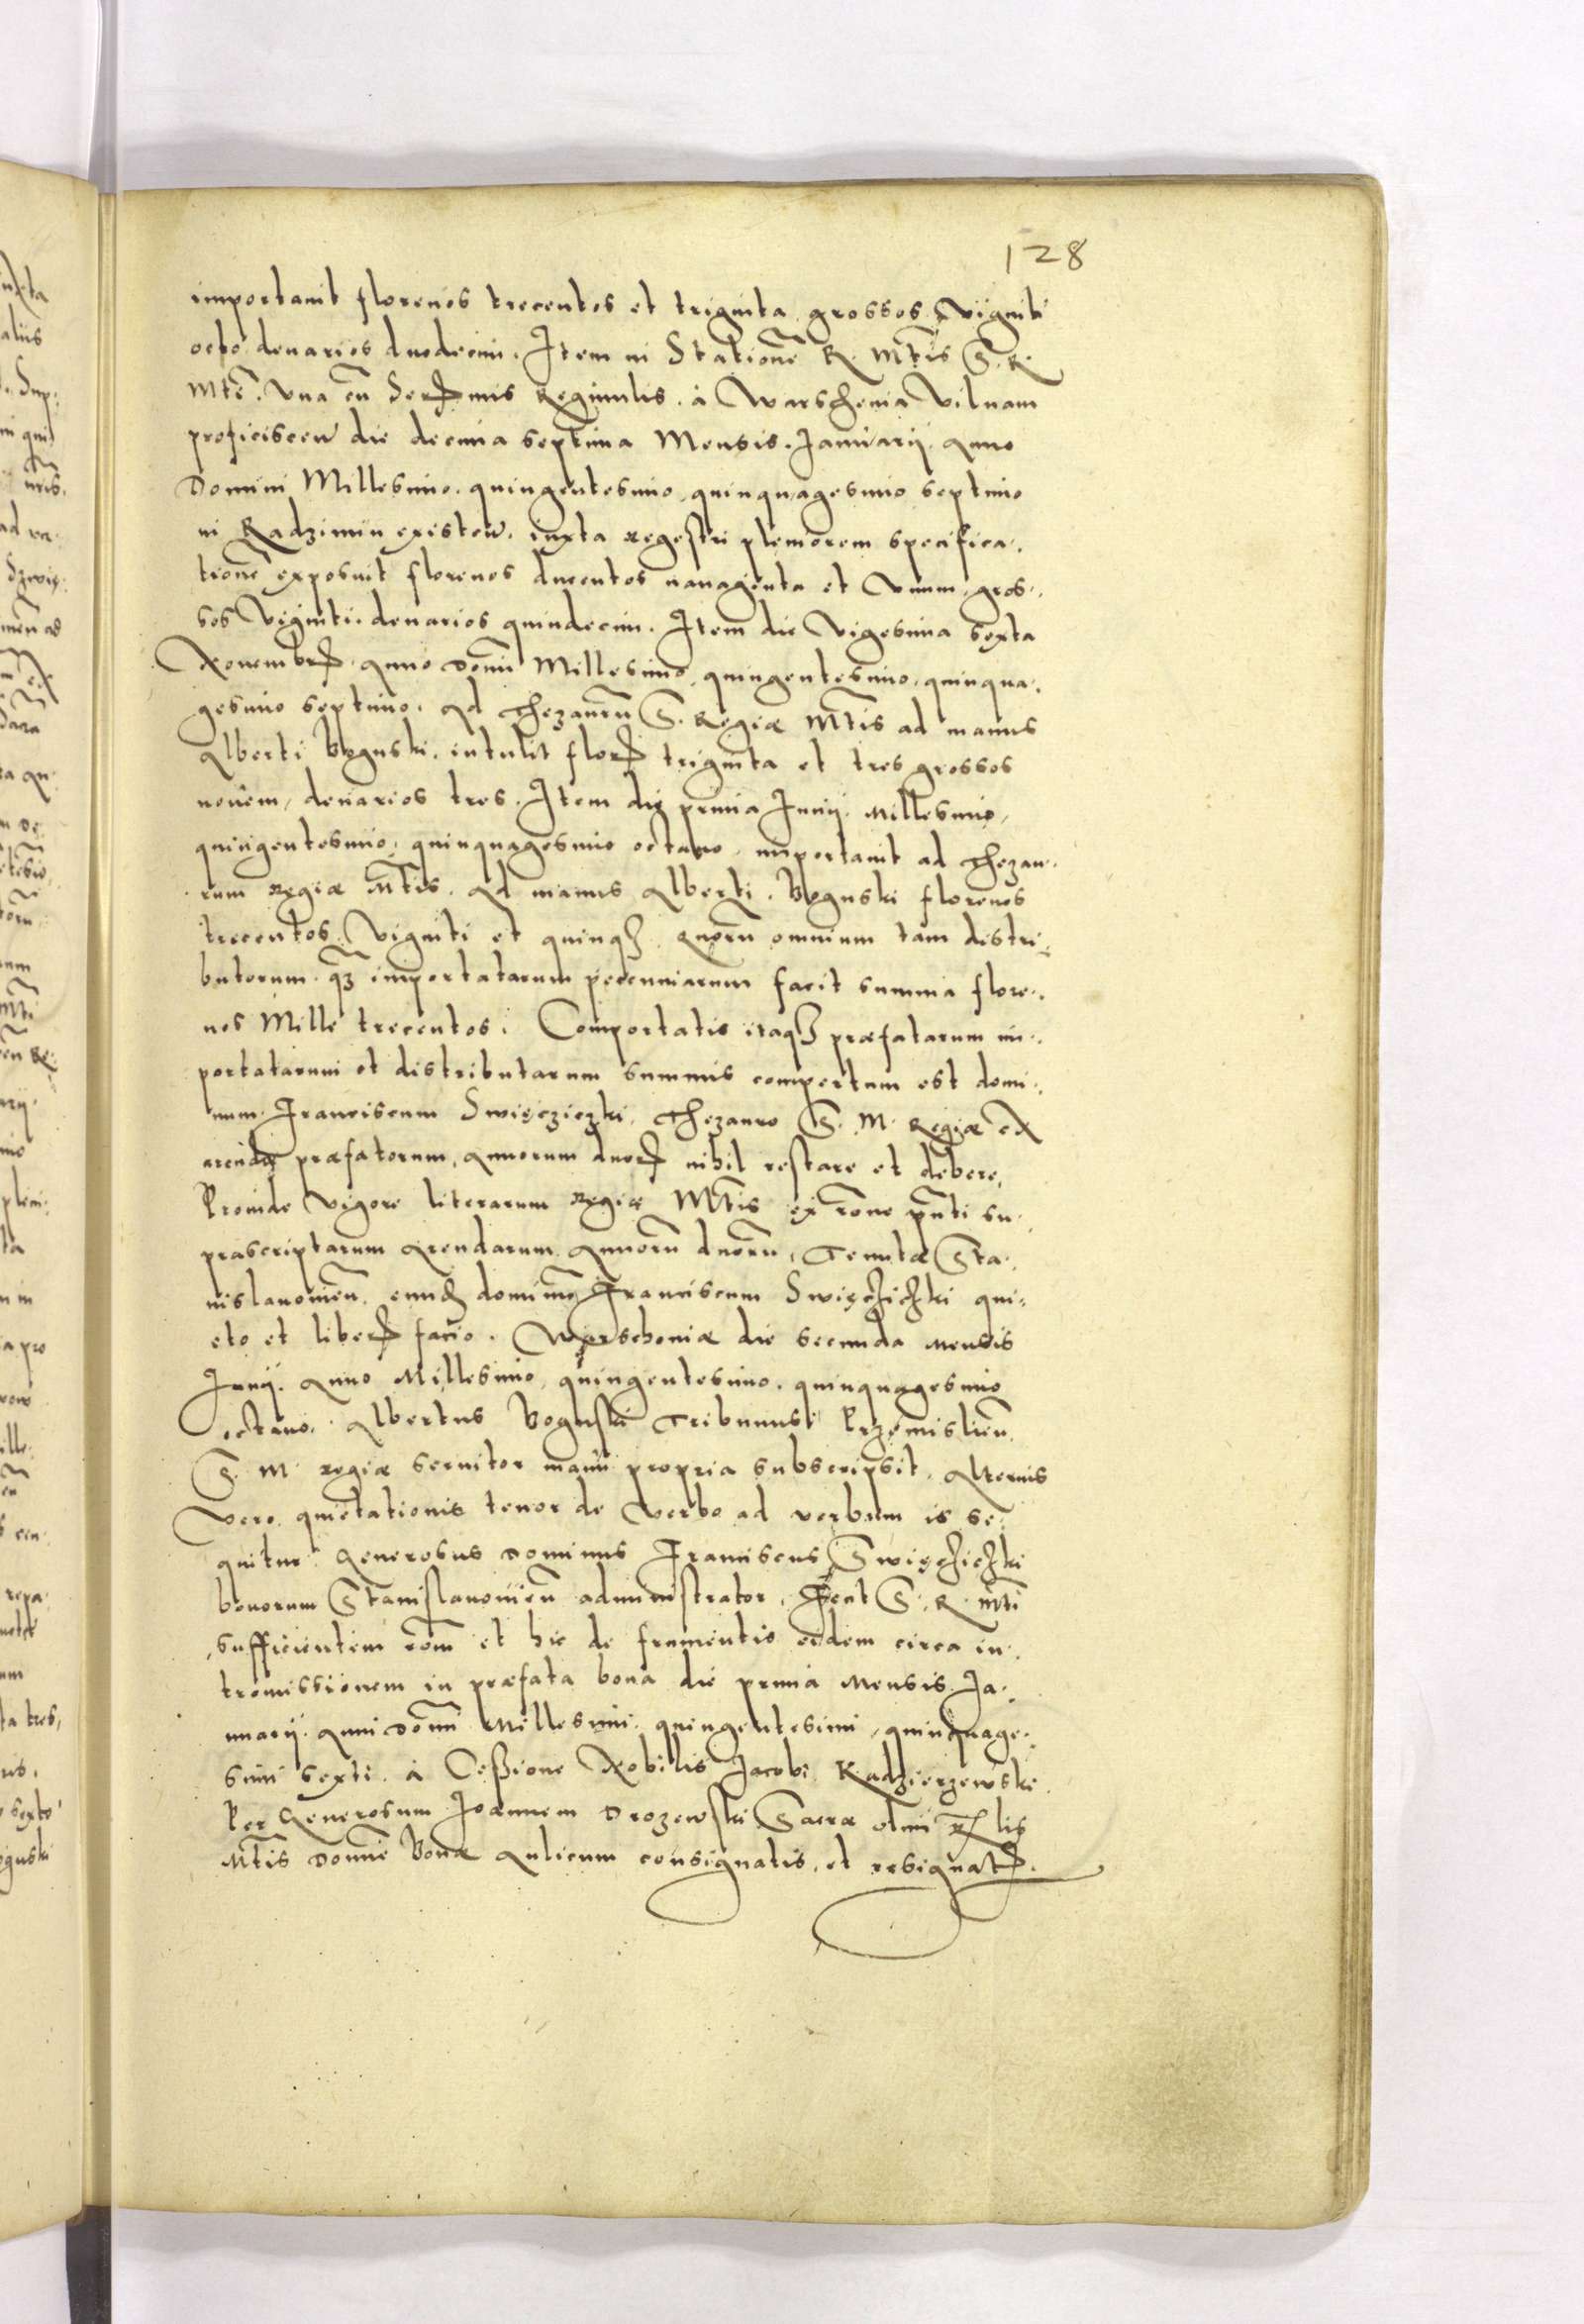 128
importauit florenos trecentos et triginta grossos Viginti
octo denarios duodecim. Item in Stationē R. Mtis S. R.
Mti. Vna cū Serenmis Reginulis. à Warschouia Vilnam
proficiscen̄ die decima septima Mensis. Januarij. Anno
Domini Millesimo. quingentesimo, quinquagesimo septimo
in Radzimin existen̄. iuxta regestri pleniorem specifica.
tionē exposuit florenos ducentos nonaginta et Vnum, gros.
sos Viginti. denarios quindecim. Item die Vigesima sexta
Nouembris. Anno Domī Millesimo, quingentesimo. quinqua.
gesimo septimo. Ad Thezaurū S. Regiæ Mtis ad manus
Alberti Boguski. intulit flor triginta et tres grossos
nouem, denarios tres. Item die prima Junij. Millesimo,
quingentesimo, quinquagesimo octauo. importauit ad Thezau.
rum Regiæ Mtis. Ad manus Alberti. Boguski florenos
trecentos Viginti et quinqʒ. Quorū omnium tam distri.
butorum. qʒ importatarum pecuniarum facit summa flore.
nos Mille trecentos. Comportatis itaqʒ præfatarum im.
portatarum et distributarum summis compertum est domi.
num. Franciscum Swięcziczki, Thezauro S. M. Regiæ ex
arenda præfatorum, annorum duor nihil restare et debere,
Proinde Vigore literarum Regiæ Mtis ex rōne pn̄ti su.
prascriptarum Arendarum Annorū duorū, Tenutæ Sta.
nislauouien̄. eundē dominū Franciscum Swięczickki qui.
eto et liber facio. Warschouiæ die secunda mensis
Junij. Anno Millesimo, quingentesimo. quinquagesimo
octauo. Albertus Boguski Tribunus Przemislien̄.
S. M. Regiæ seruitor manu propria subscripsit. Alterius
vero quietationis tenor de verbo ad verbum is se.
quitur. Generosus Dominus Franciscus Swięczickki
bonorum Stanislauouien̄ administrator. Fecit S. R. Mti
sufficientem rōnem et hic de frumentis eidem circa in.
tromissionem in præfata bona die prima mensis Ja.
nuarij. anni Domī Millesimi. quingentesimi, quinquage.
simi sexti. à Cessione Nobilis Jacobi Kadzierzewski.
Per Generosum Joannem Drozewski Sacræ olim Rlis
Mtis Domnē Bonæ Aulicum consignatis. et resignat.